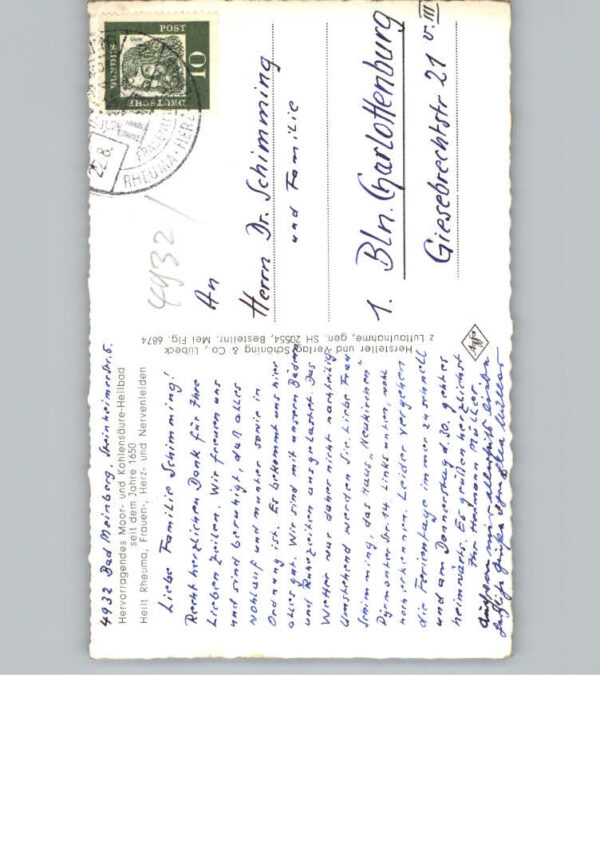 4932 Bad Meinberg, Steinheimerstr. 5.
Hervorragendes Moor- und Kohlensäure-Heilbad
seit dem Jahre 1650
Heilt Rheuma, Frauen-, Herz- und Nervenleiden
Liebe Familie Schimming!
Recht herzlichen Dank für Ihre
lieben Zeilen. Wir freuen uns
und sind beruhigt, daß alles
wohlauf und munter sowie in
Ordnung ist. Es bekommt uns hier
alles gut. Wir sind mit unseren Bädern
und Ruhezeiten ausgelastet. Das
Wetter war daher nicht nachteilig
Umstehend werden Sie, liebe Frau
Schimming, das Haus „Neukirchen"
Pyrmonter Str. 14. Links unten, wohl
noch erkennen. Leider vergehen
die Ferientage immer zu schnell
und am Donnerstag d. 30. geht es
heimwärts. Es grüßen herzlichst
Ihr Hermann Müller
Auch von mir
Müller
Hersteller und Verlag Schöning & Co., Lübeck
z Luftaufnahme, gen. SH 20554, Bestellnr. Mei Flg. 6874
Agfa
DEUTSCHE BUNDESPOST
10
22.8.
RHEUMA · HERZ
4932
An
Herrn Dr. Schimming
und Familie
1. Bln. Charlottenburg
Giesebrechtstr 21 v. III